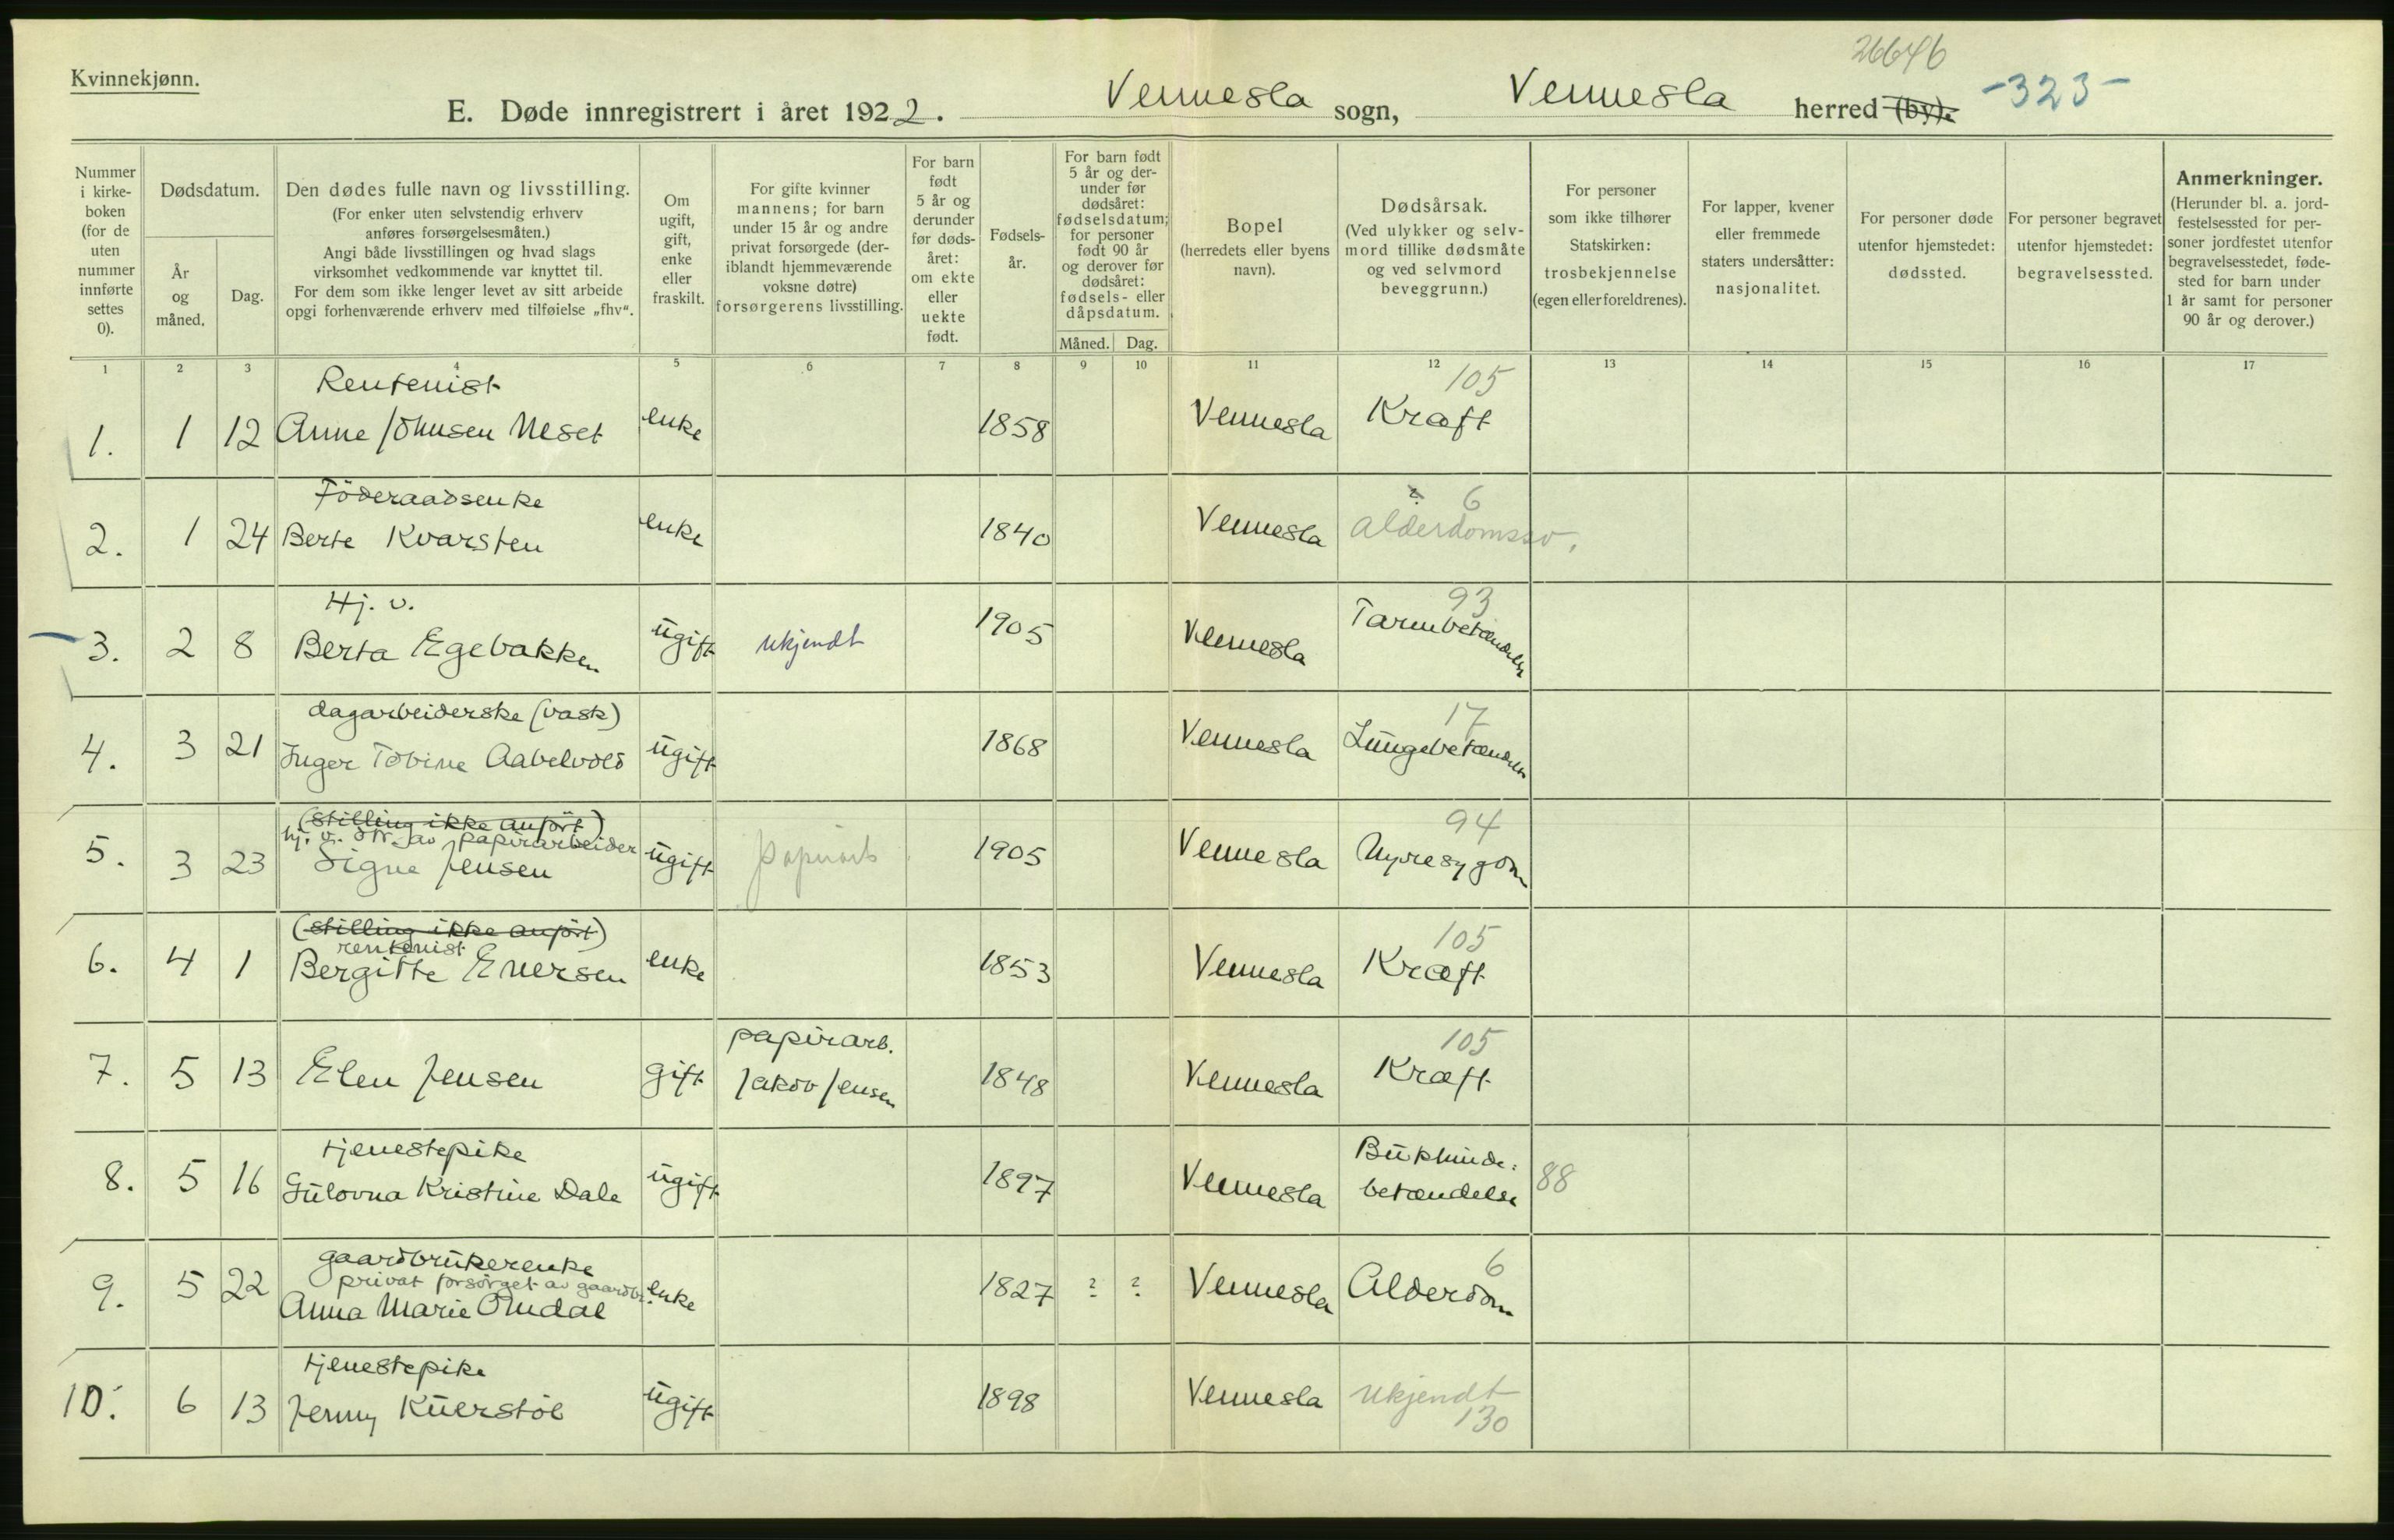 26646
Kvinnekjønn.
E. Døde innregistrert i året 1922. Vennesla sogn, Vennesla herred (by). -323-
Nummer i kirke-boken (for de uten nummer innførte settes 0).
Dødsdatum.
År og måned.
Dag.
Den dødes fulle navn og livsstilling.
(For enker uten selvstendig erhverv anføres forsørgelsesmåten.)
Angi både livsstillingen og hvad slags virksomhet vedkommende var knyttet til.
For dem som ikke lenger levet av sitt arbeide opgi forhenværende erhverv med tilføielse „fhv“.
Om ugift, gift, enke eller fraskilt.
For gifte kvinner mannens; for barn under 15 år og andre privat forsørgede (der-iblandt hjemmeværende voksne døtre) forsørgerens livsstilling.
For barn født 5 år og derunder før døds-året: om ekte eller uekte født.
Fødsels-år.
For barn født 5 år og der-under før dødsåret: fødselsdatum; for personer født 90 år og derover før dødsåret: fødsels- eller dåpsdatum.
Måned.
Dag.
Bopel (herredets eller byens navn).
Dødsårsak.
(Ved ulykker og selv-mord tillike dødsmåte og ved selvmord beveggrunn.)
For personer som ikke tilhører Statskirken: trosbekjennelse (egen eller foreldrenes).
For lapper, kvener eller fremmede staters undersåtter: nasjonalitet.
For personer døde utenfor hjemstedet: dødssted.
For personer begravet utenfor hjemstedet: begravelsessted.
Anmerkninger.
(Herunder bl. a. jord-festelsessted for per-soner jordfestet utenfor begravelsesstedet, føde-sted for barn under 1 år samt for personer 90 år og derover.)
1 2 3 4 5 6 7 8 9 10 11 12 13 14 15 16 17
Rentenist 105
1. 1 12 Anne Johnsen Neset enke 1858 Vennesla Kræft
Föderaadsenke ? 6
2. 1 24 Berte Kvarsten enke 1840 Vennesla alderdomssv.
Hj. v. 93
3. 2 8 Berta Egebakken ugift ukjendt 1905 Vennesla Tarmbetændelse
dagarbeiderske (vask) 17
4. 3 21 Inger Tobine Aabelvold ugift 1868 Vennesla Lungebetændelse
(stilling ikke anfört) 94
hj. v. dtr. av papirarbeider
5. 3 23 Signe Jensen ugift papirarb 1905 Vennesla Nyresygdom
(stilling ikke anfört) 105
rentenist
6. 4 1 Bergitte Enersen enke 1853 Vennesla Kræft
papirarb. 105
7. 5 13 Elen Jensen gift Jakob Jensen 1848 Vennesla Kræft
tjenestepike Bukhinde-
8. 5 16 Gulovna Kristine Dale ugift 1897 Vennesla betændelse 88
gaardbrukerenke 6
privat forsörget av gaardbr.
9. 5 22 Anna Marie Omdal enke 1827 ? ? Vennesla Alderdom
tjenestepike
10. 6 13 Jenny Kuerstöl ugift 1898 Vennesla ukjendt
130